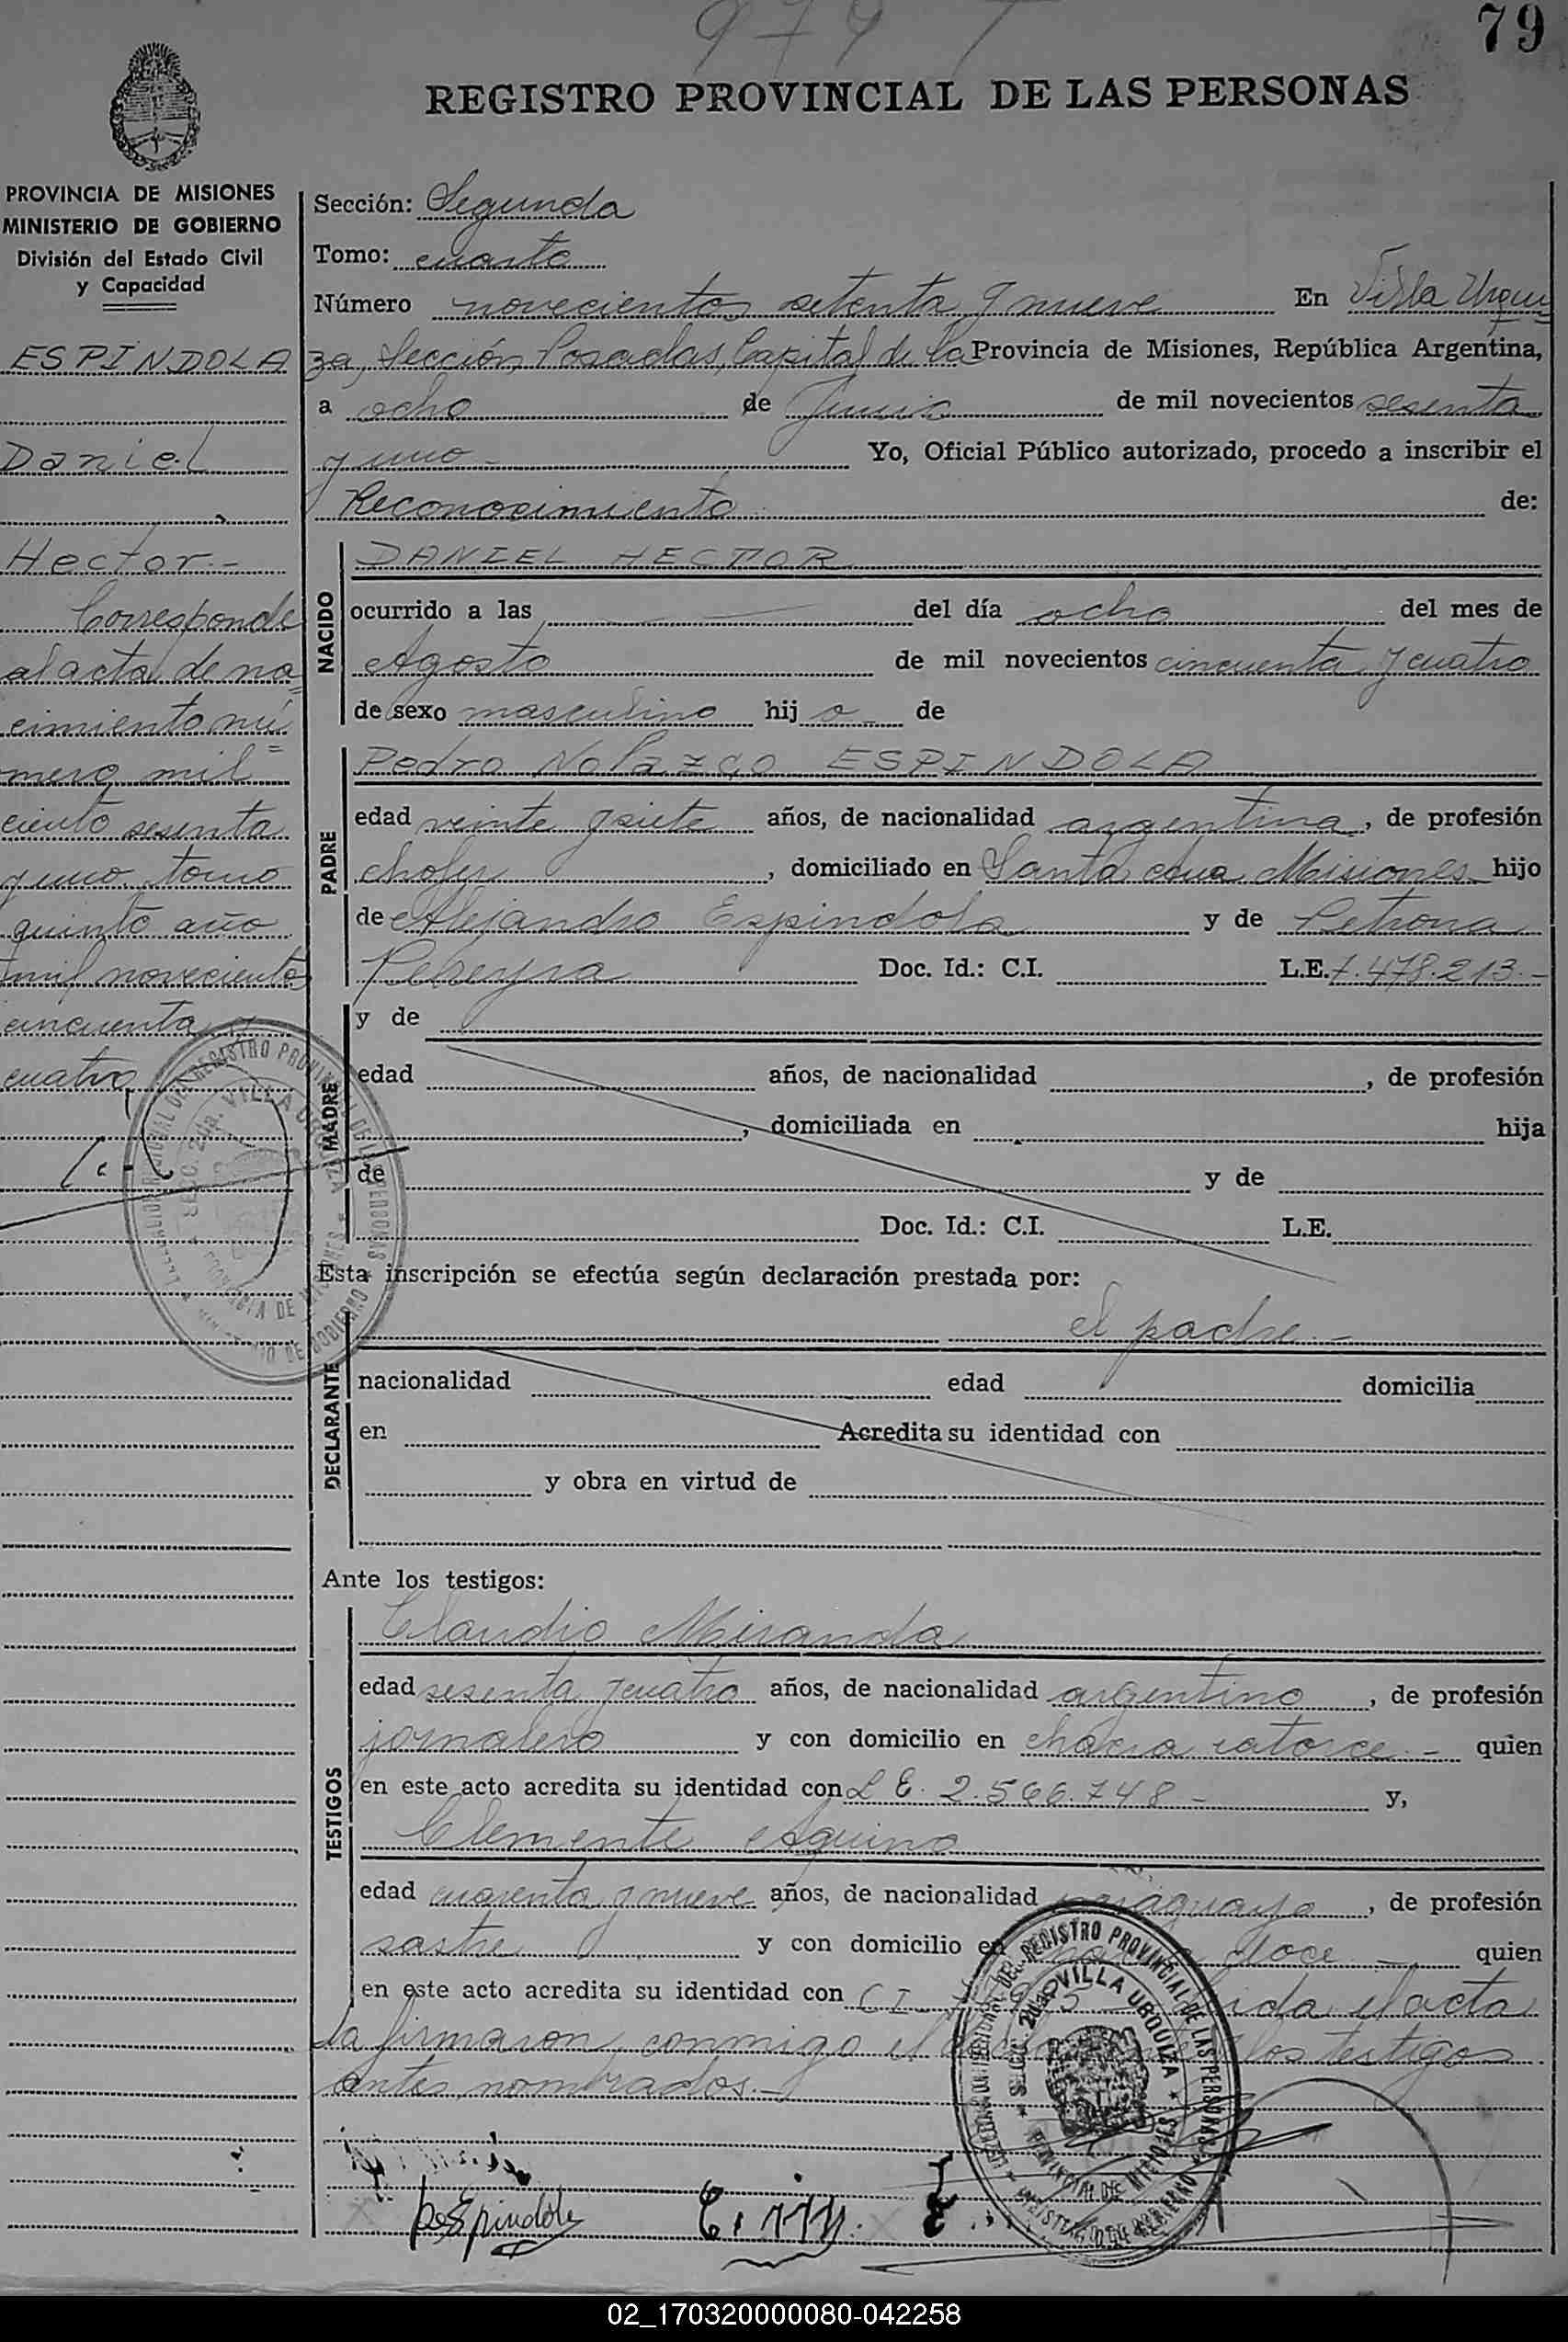 979
79
REGISTRO PROVINCIAL DE LAS PERSONAS
PROVINCIA DE MISIONES
MINISTERIO DE GOBIERNO
División del Estado Civil
y Capacidad
ESPINDOLA
Daniel
Hector.-
Corresponde
al acta de na=
cimiento nú=
mero mil
ciento sesenta
y uno tomo
quinto año
mil novecientos
cincuenta y
cuatro
Sección: Segunda
Tomo: cuarto
Número novecientos setenta y nueve En Villa Urqui
za, Sección Posadas, Capital de la Provincia de Misiones, República Argentina,
a ocho de Junio de mil novecientos sesenta
y uno - Yo, Oficial Público autorizado, procedo a inscribir el
Reconocimiento de:
NACIDO
DANIEL HECTOR
ocurrido a las del día ocho del mes de
Agosto de mil novecientos cincuenta y cuatro
de sexo masculino hij o de
PADRE
Pedro Nolazco ESPINDOLA
edad veinte y siete años, de nacionalidad argentina, de profesión
chofer, domiciliado en Santa Ana Misiones hijo
de Alejandro Espindola y de Petrona
Pereyra Doc. Id.: C.I. L.E. 7.478.213.-
MADRE
y de
edad años, de nacionalidad , de profesión
, domiciliada en hija
de y de
Doc. Id.: C.I. L.E.
Esta inscripción se efectúa según declaración prestada por:
el padre.-
DECLARANTE
nacionalidad edad domicilia
en Acredita su identidad con
y obra en virtud de
Ante los testigos:
TESTIGOS
Claudio Miranda
edad sesenta y cuatro años, de nacionalidad argentino, de profesión
jornalero y con domicilio en chacra catorce.- quien
en este acto acredita su identidad con L E. 2.566.748 - y,
Clemente Aquino
edad cuarenta y nueve años, de nacionalidad paraguayo, de profesión
sastre y con domicilio en doce - quien
en este acto acredita su identidad con C I el acta
la firmaron conmigo el los testigos
antes nombrados.-
REGISTRO PROVINCIAL DE LAS PERSONAS
VILLA URQUIZA
PROVINCIA DE MISIONES
MINISTERIO DE GOBIERNO
02_170320000080-042258